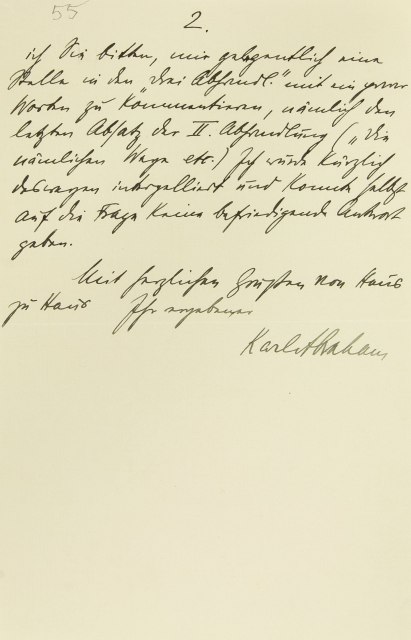 55
2.
ich Sie bitten, mir gelegentlich eine
Stelle in den „Drei Abhandl." mit ein paar
Worten zu kommentieren, nämlich den
letzten Absatz der II. Abhandlung („Die
nämlichen Wege etc.) Ich wurde kürzlich
deswegen interpelliert und konnte selbst
auf die Frage keine befriedigende Antwort
geben.
Mit herzlichen Grüßen von Haus
zu Haus Ihr ergebener
Karl Abraham